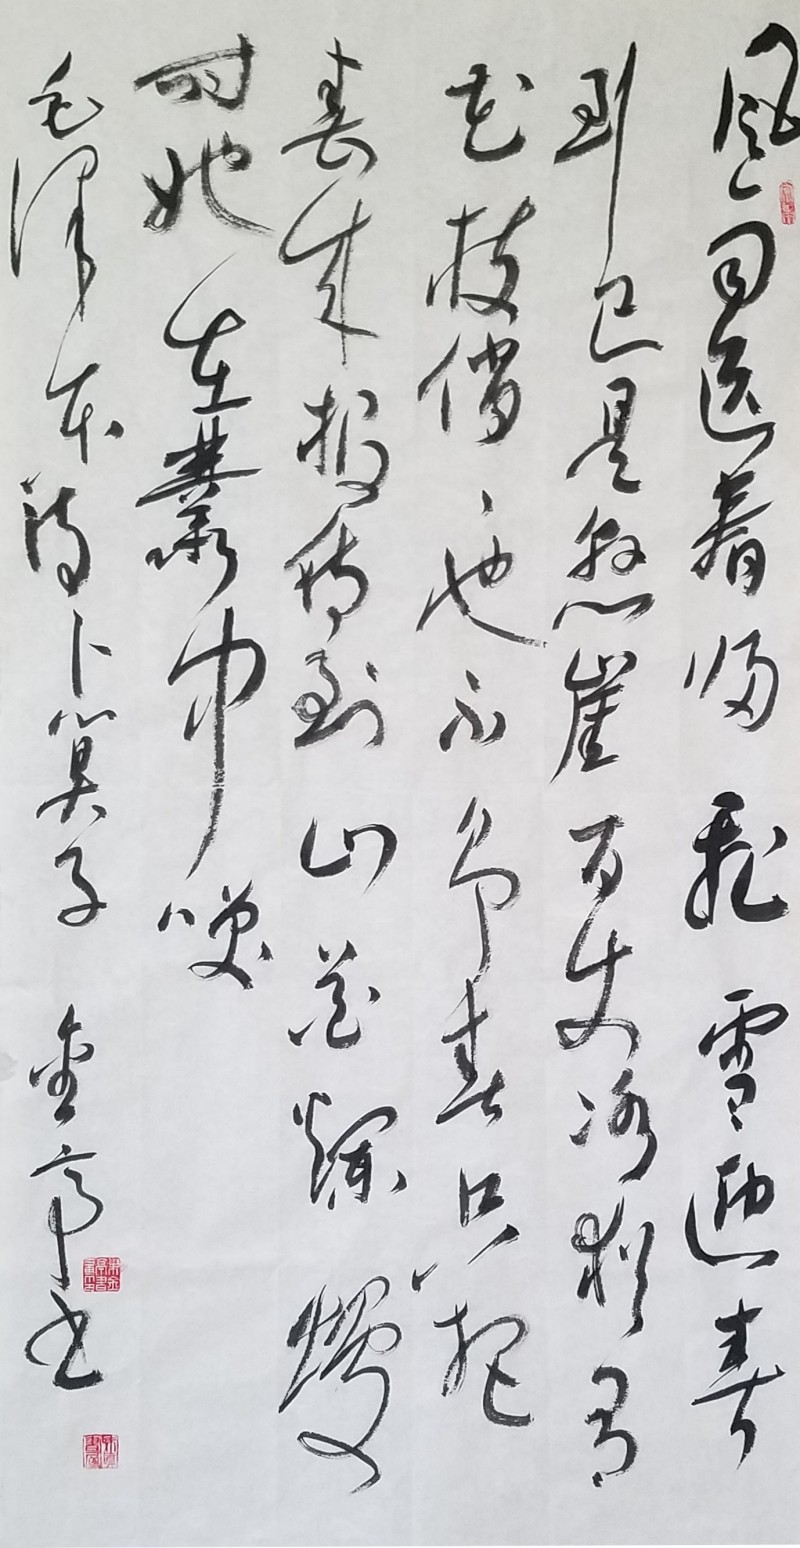 风雨送春归飛雪迎春
到已是悬崖百丈冰犹有
花枝俏、也不争春只把
春来报待到山花烂熳
时她在叢中咲
毛泽东诗卜算子 金亭书